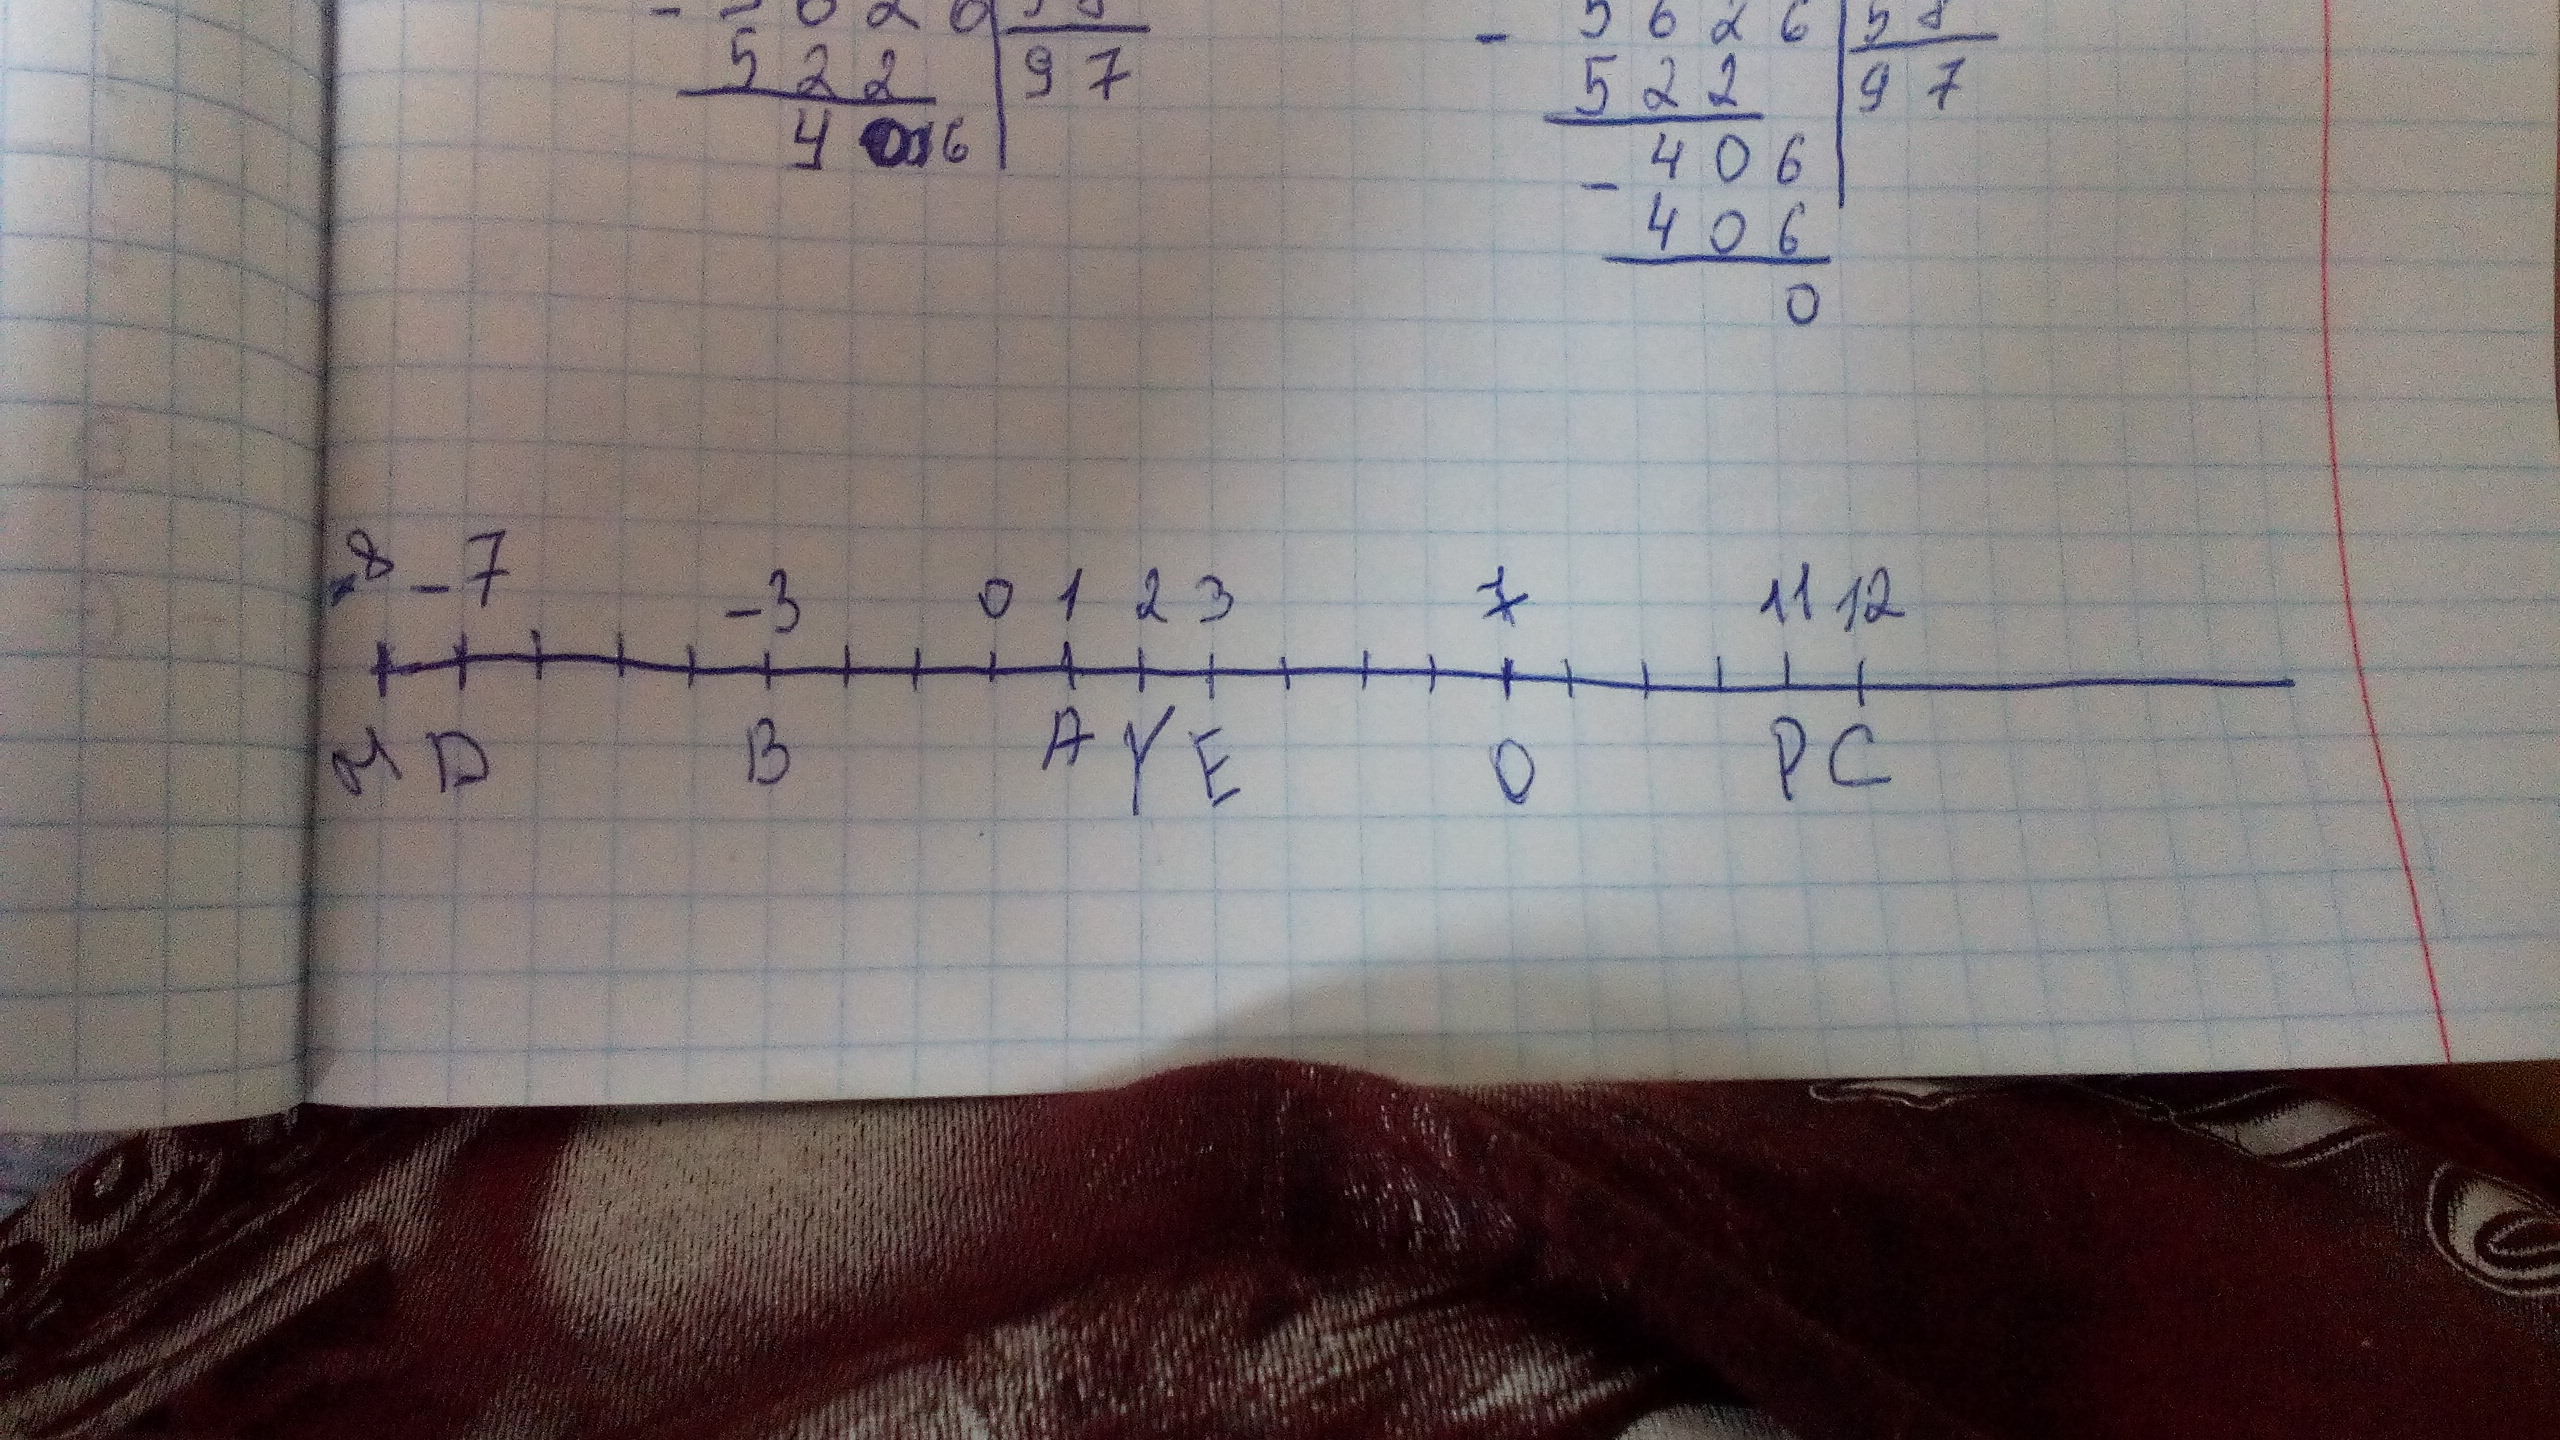 - 5626 58
522 97
406
- 5626 58
522 97
- 406
406
0
-8 -7 -3 0 1 2 3 7 11 12
M D B A Y E O P C